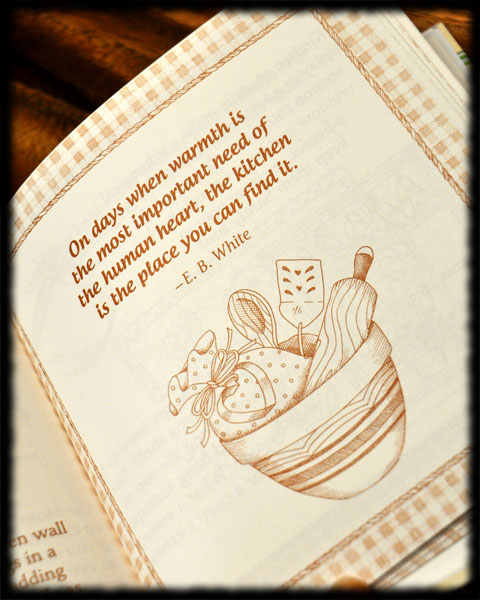 On days when warmth is
the most important need of
the human heart, the kitchen
is the place you can find it.
–E. B. White
wall
in a